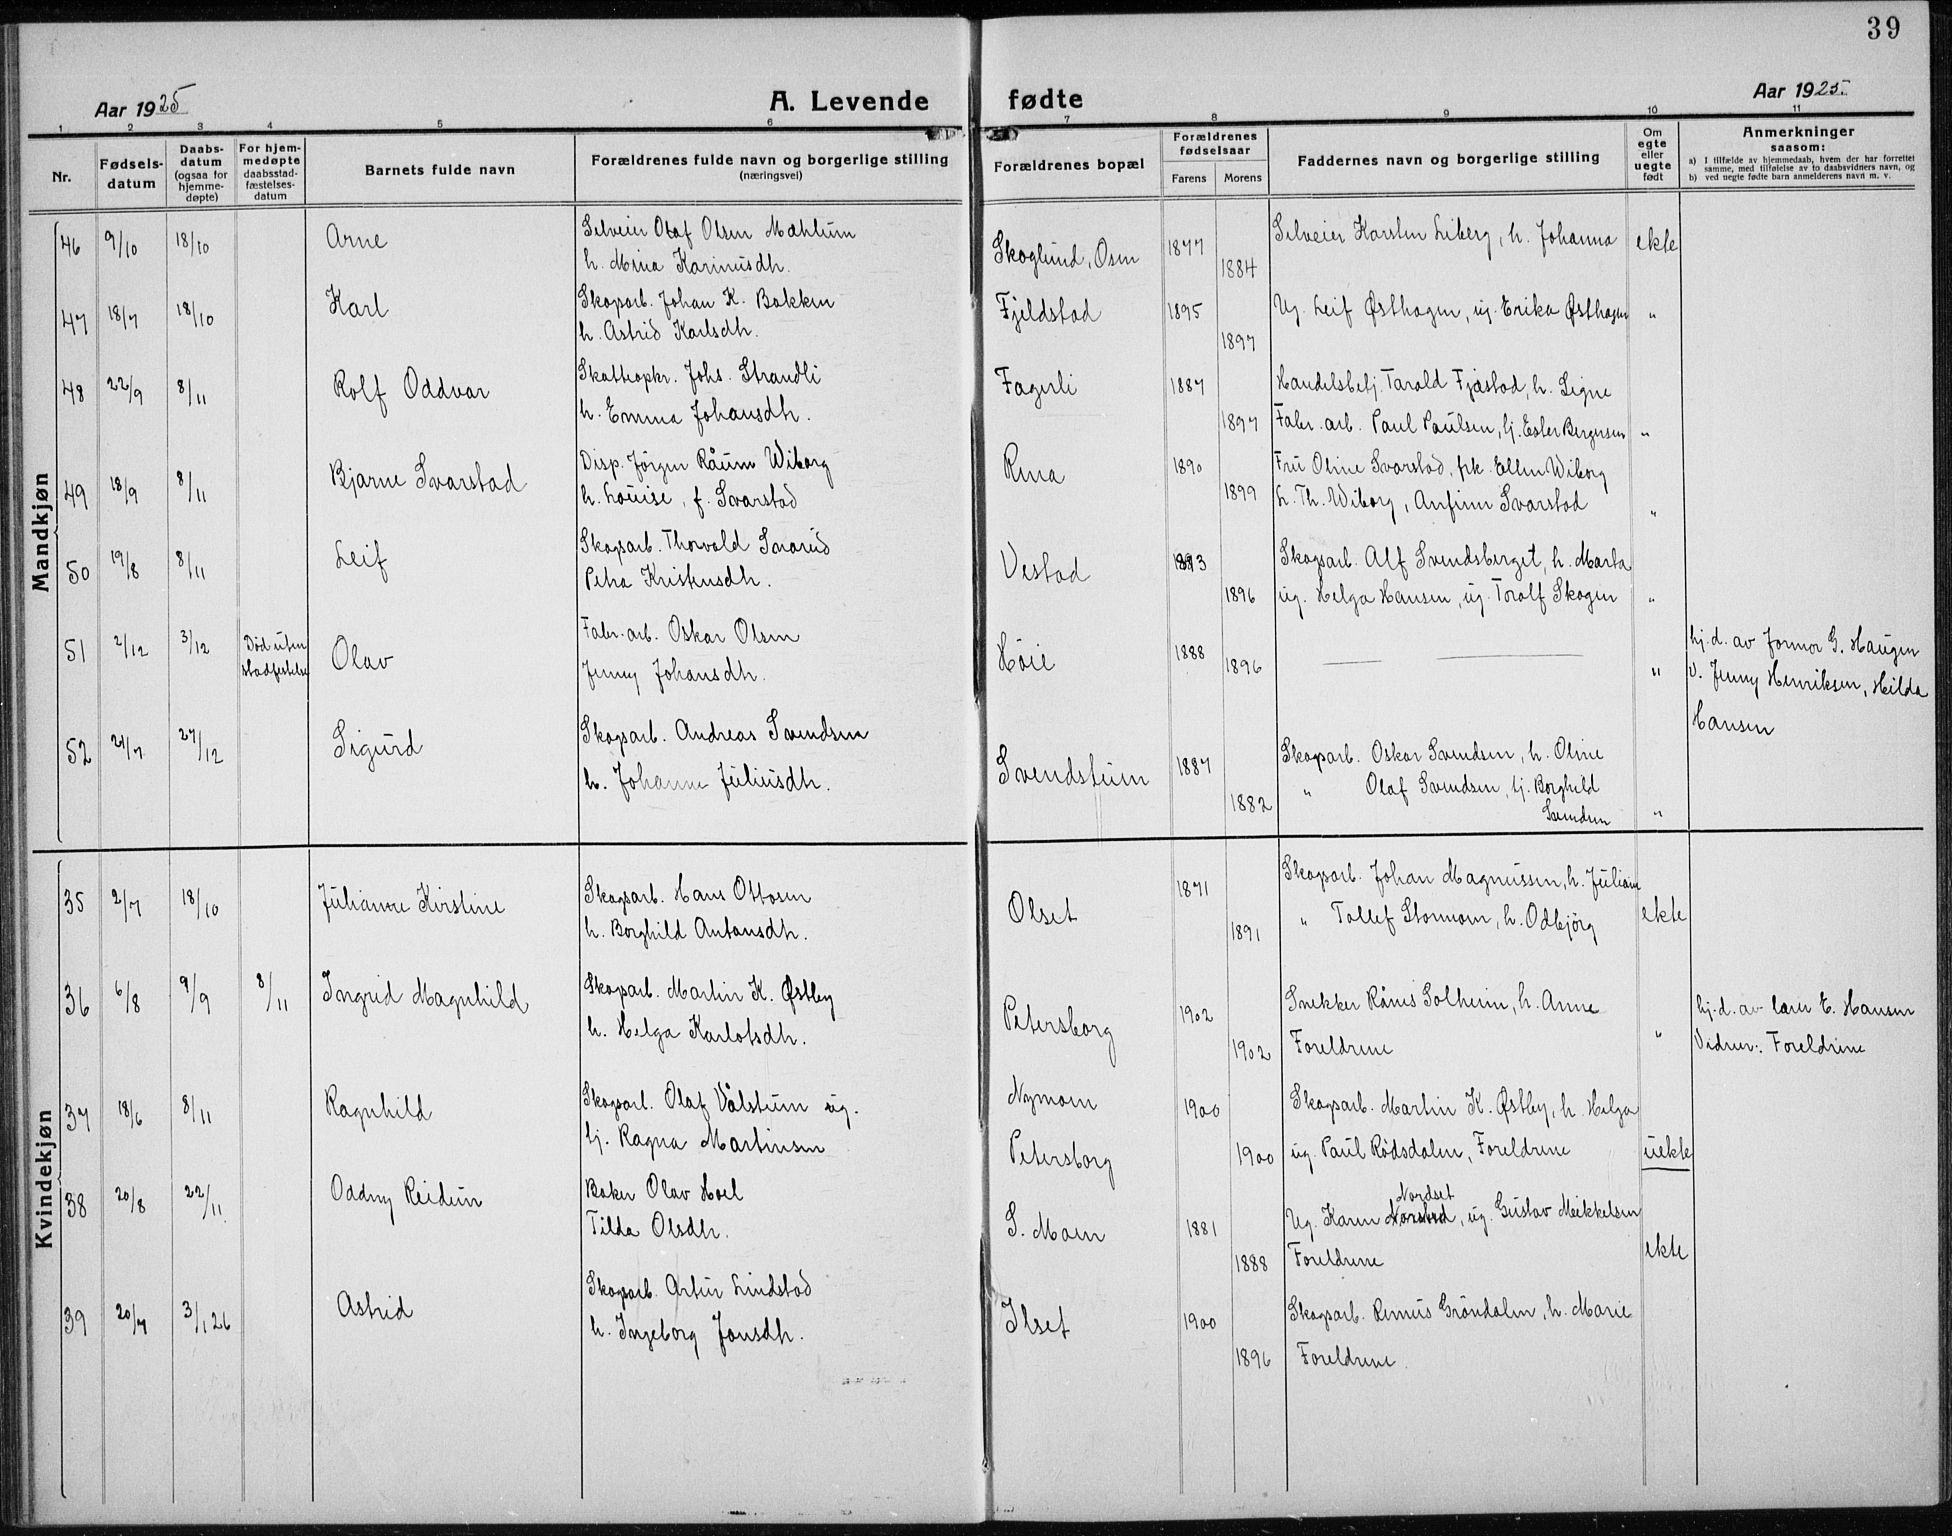 39
Aar 1925
A. Levende fødte
Aar 1925.
1 2 3 4 5 6 7 8 9 10 11
Nr.
Fødsels-
datum
Daabs-
datum
(ogsaa for
hjemme-
døpte)
For hjem-
medøpte
daabsstad-
fæstelses-
datum
Barnets fulde navn
Forældrenes fulde navn og borgerlige stilling
(næringsvei)
Forældrenes bopæl
Forældrenes
fødselsaar
Farens Morens
Faddernes navn og borgerlige stilling
Om
egte
eller
uegte
født
Anmerkninger
saasom:
a) I tilfælde av hjemmedaab, hvem der har forrettet
samme, med tilføielse av to daabsvidners navn, og
b) ved uegte fødte barn anmelderens navn m. v.
Mandkjøn
46 9/10 18/10 Arne
Selveier Olaf Olsen Mæhlum
h. Mina Karinusdh.
Skoglund, Osen 1877
1884
Selveier Karsten Liberg, h. Johanna ekte
47 18/7 18/10 Karl
Skogsarb. Johan K. Bakken
h. Astrid Karlsdh.
Fjeldstad 1895
1897
Ug. Leif Østhagen, ug. Erika Østhagen "
48 22/9 8/11 Rolf Oddvar
Skatteopkr. Johs. Strandli
h. Emma Johansdh.
Fagerli 1887
1897
Handelsbetj. Tarald Fjæstad, h. Signe
Fabr. arb. Paul Paulsen, tj. Ester Bergersen "
49 18/9 8/11 Bjarne Svarstad
Disp. Jörgen Råum Wiborg
h. Louise, f. Svarstad
Rena 1890
1899
Fru Oline Svarstad, frk. Ellen Wiborg
h. Th. Wiborg, Anfinn Svarstad "
50 19/8 8/11 Leif
Skogsarb. Thorvald Snarud
Petra Kristensdh.
Vestad 1893
1896
Skogsarb. Alf Svendsberget, h. Marta
ug. Helga Hansen, ug. Toralf Skogen "
51 2/12 3/12 Død uten
stadfestelse
Olav
Fabr. arb. Oskar Olsen
Jenny Johansdh.
Höie 1888
1896
— — "
hj. d. av Jormor G. Haugen
v. Jenny Henriksen, Hilda
Hansen
52 21/7 27/12 Sigurd
Skogsarb. Andreas Svendsen
h. Johanne Juliusdh.
Svendstuen 1887
1882
Skogsarb. Oskar Svendsen, h. Oline
" Olaf Svendsen, tj. Borghild
Svendsen "
Kvindekjøn
35 2/7 18/10 Julianne Kirstine
Skogsarb. Hans Ottosen
h. Borghild Antonsdh.
Olset 1871
1891
Skogsarb. Johan Magnussen, h. Juliane
" Tollef Stormoen, h. Odbjörg ekte
36 6/8 9/9 8/11 Ingrid Magnhild
Skogsarb. Martin K. Østby
h. Helga Karlotsdh.
Petersborg 1902
1902
Snekker Rånes Solheim, h. Anne
Foreldrene "
hj. d. av lærer E. Hansen
Vidner: Foreldrene
37 18/6 8/11 Ragnhild
Skogsarb. Olaf Vålstuen ug.
tj. Ragna Martinsen
Nymoen
Petersborg
1900
1900
Skogsarb. Martin K. Østby, h. Helga
ug. Paul Rödsdalen, Foreldrene uekte
38 20/8 22/11 Oddny Reidun
Baker Olav Hoel
Tilda Olsdh.
S. Moen 1881
1888
Nordset
Ug. Karen , ug. Gustav Mikkelsen
Foreldrene ekte
39 20/7 3/1 26 Astrid
Skogsarb. Artur Lindstad
h. Ingeborg Jonsdh.
Ilset 1900
1896
Skogsarb. Remus Gröndalen, h. Marie
Foreldrene.